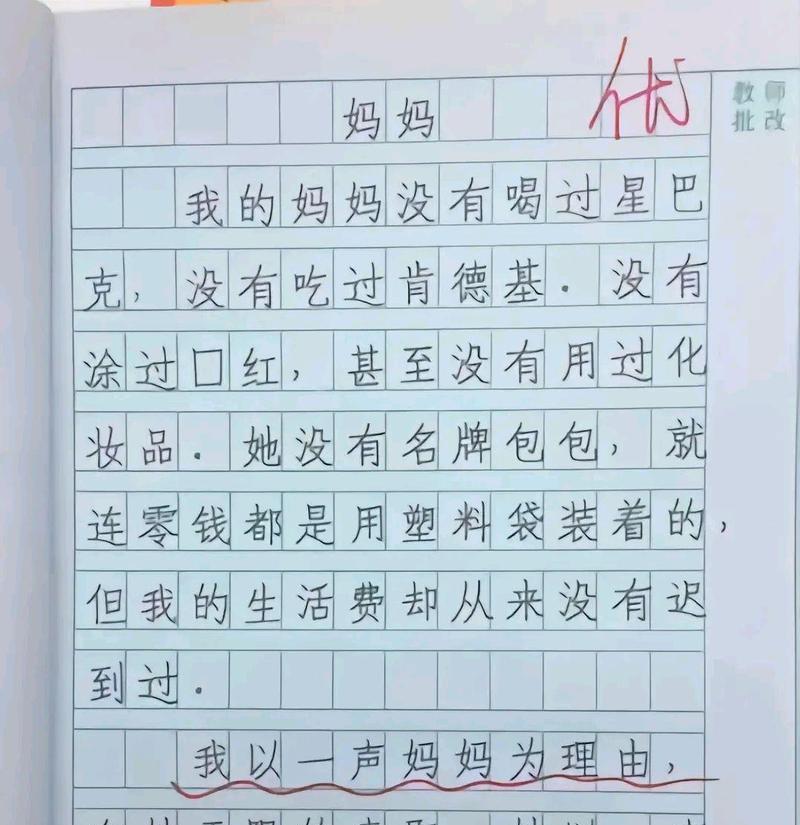 妈妈
优
教师
批改
我的妈妈没有喝过星巴
克，没有吃过肯德基．没有
涂过口红，甚至没有用过化
妆品．她没有名牌包包，就
连零钱都是用塑料袋装着的，
但我的生活费却从来没有迟
到过．
我以一声妈妈为理由，